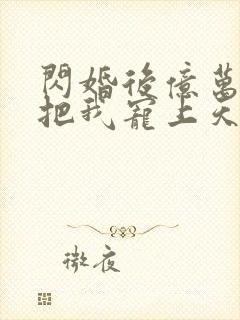 閃婚後億萬
把我寵上天
微夜